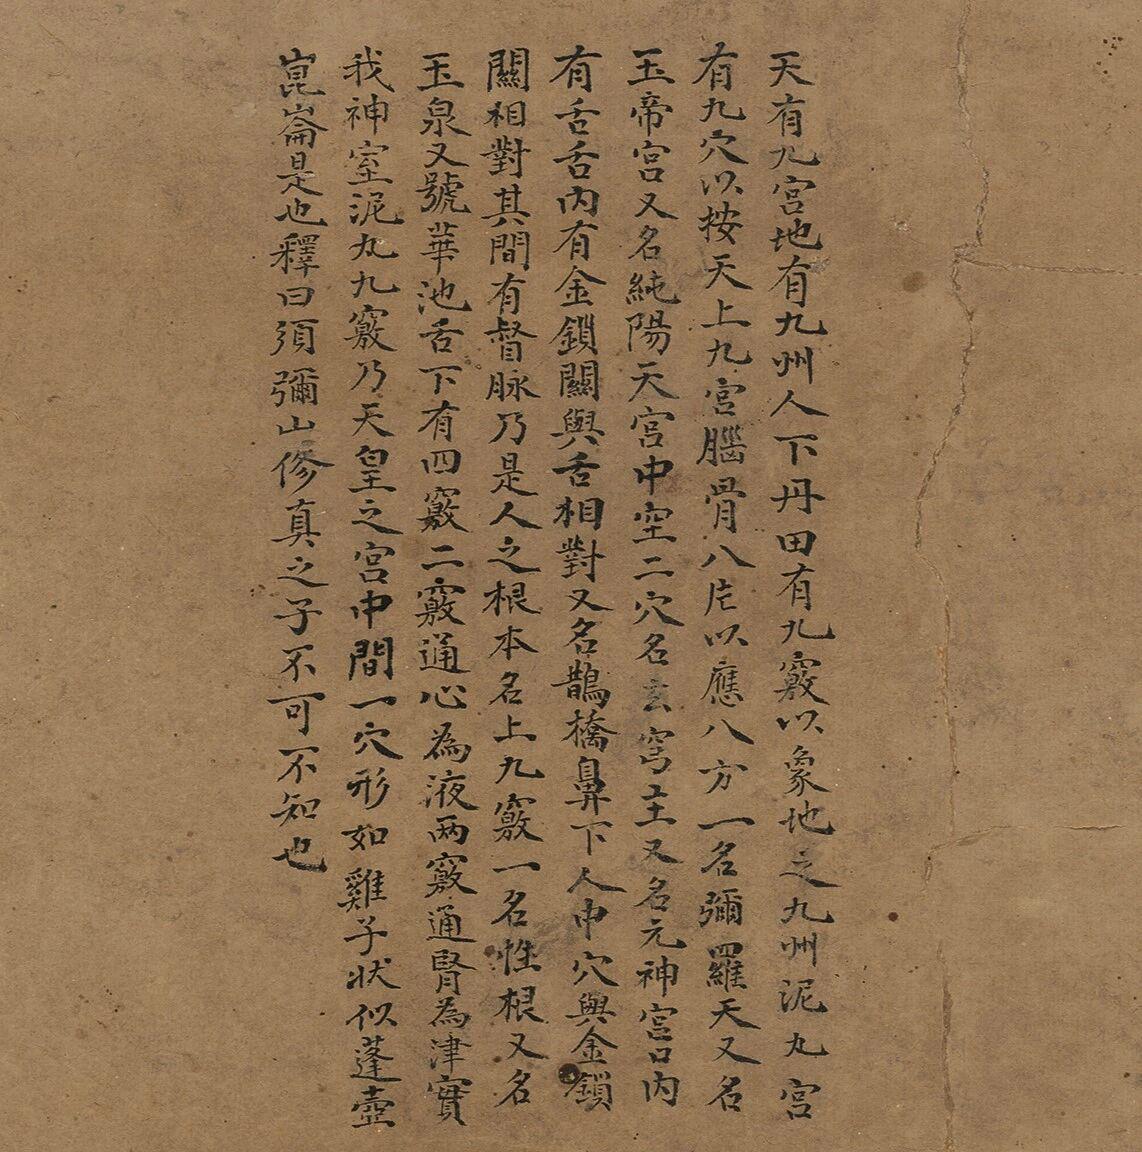 天有九宮地有九州人下丹田有九竅以象地之九州泥丸宮
有九穴以按天上九宮腦骨八片以應八方一名彌羅天又名
玉帝宮又名純陽天宮中空二穴名玄穹主又名元神宮口內
有舌舌內有金鎖關與舌相對又名鵲橋鼻下人中穴與金鎖
關相對其間有督脉乃是人之根本名上九竅一名性根又名
玉泉又號華池舌下有四竅二竅通心為液兩竅通腎為津實
我神室泥丸九竅乃天皇之宮中間一穴形如雞子狀似蓬壺
崑崙是也釋曰須彌山修真之子不可不知也